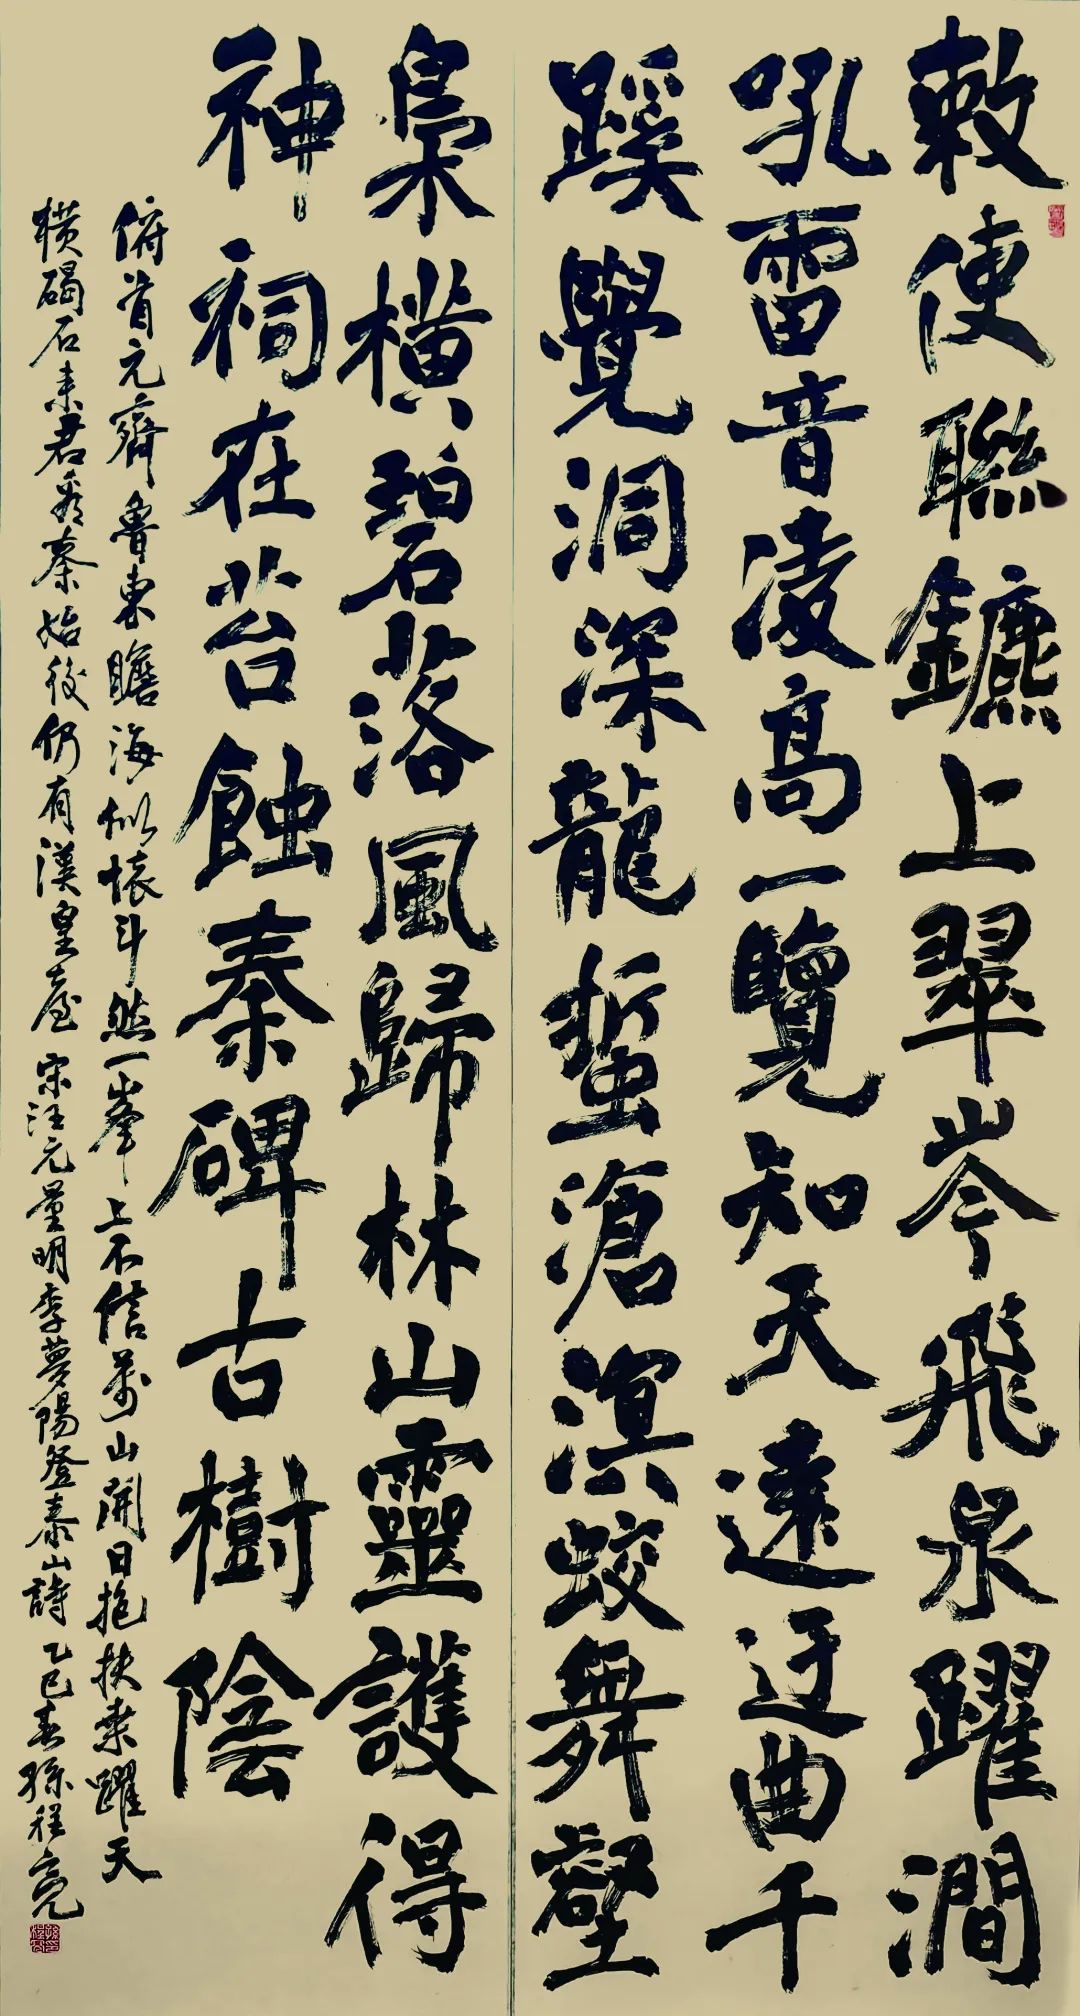 敕使聯鑣上翠岑飛泉躍澗
吼雷音凌高一覽知天遠迂曲千
蹊覺洞深龍蟄滄溟蛟舞壑
梟橫碧落風歸林山靈護得
神祠在苔蝕秦碑古樹陰
俯首元齊魯東瞻海似懷斗然一峯上不信萬山開日抱扶桑躍天
橫碣石来君看秦始後仍有漢皇臺 宋汪元量明李夢陽登泰山詩 乙巳春孫程亮